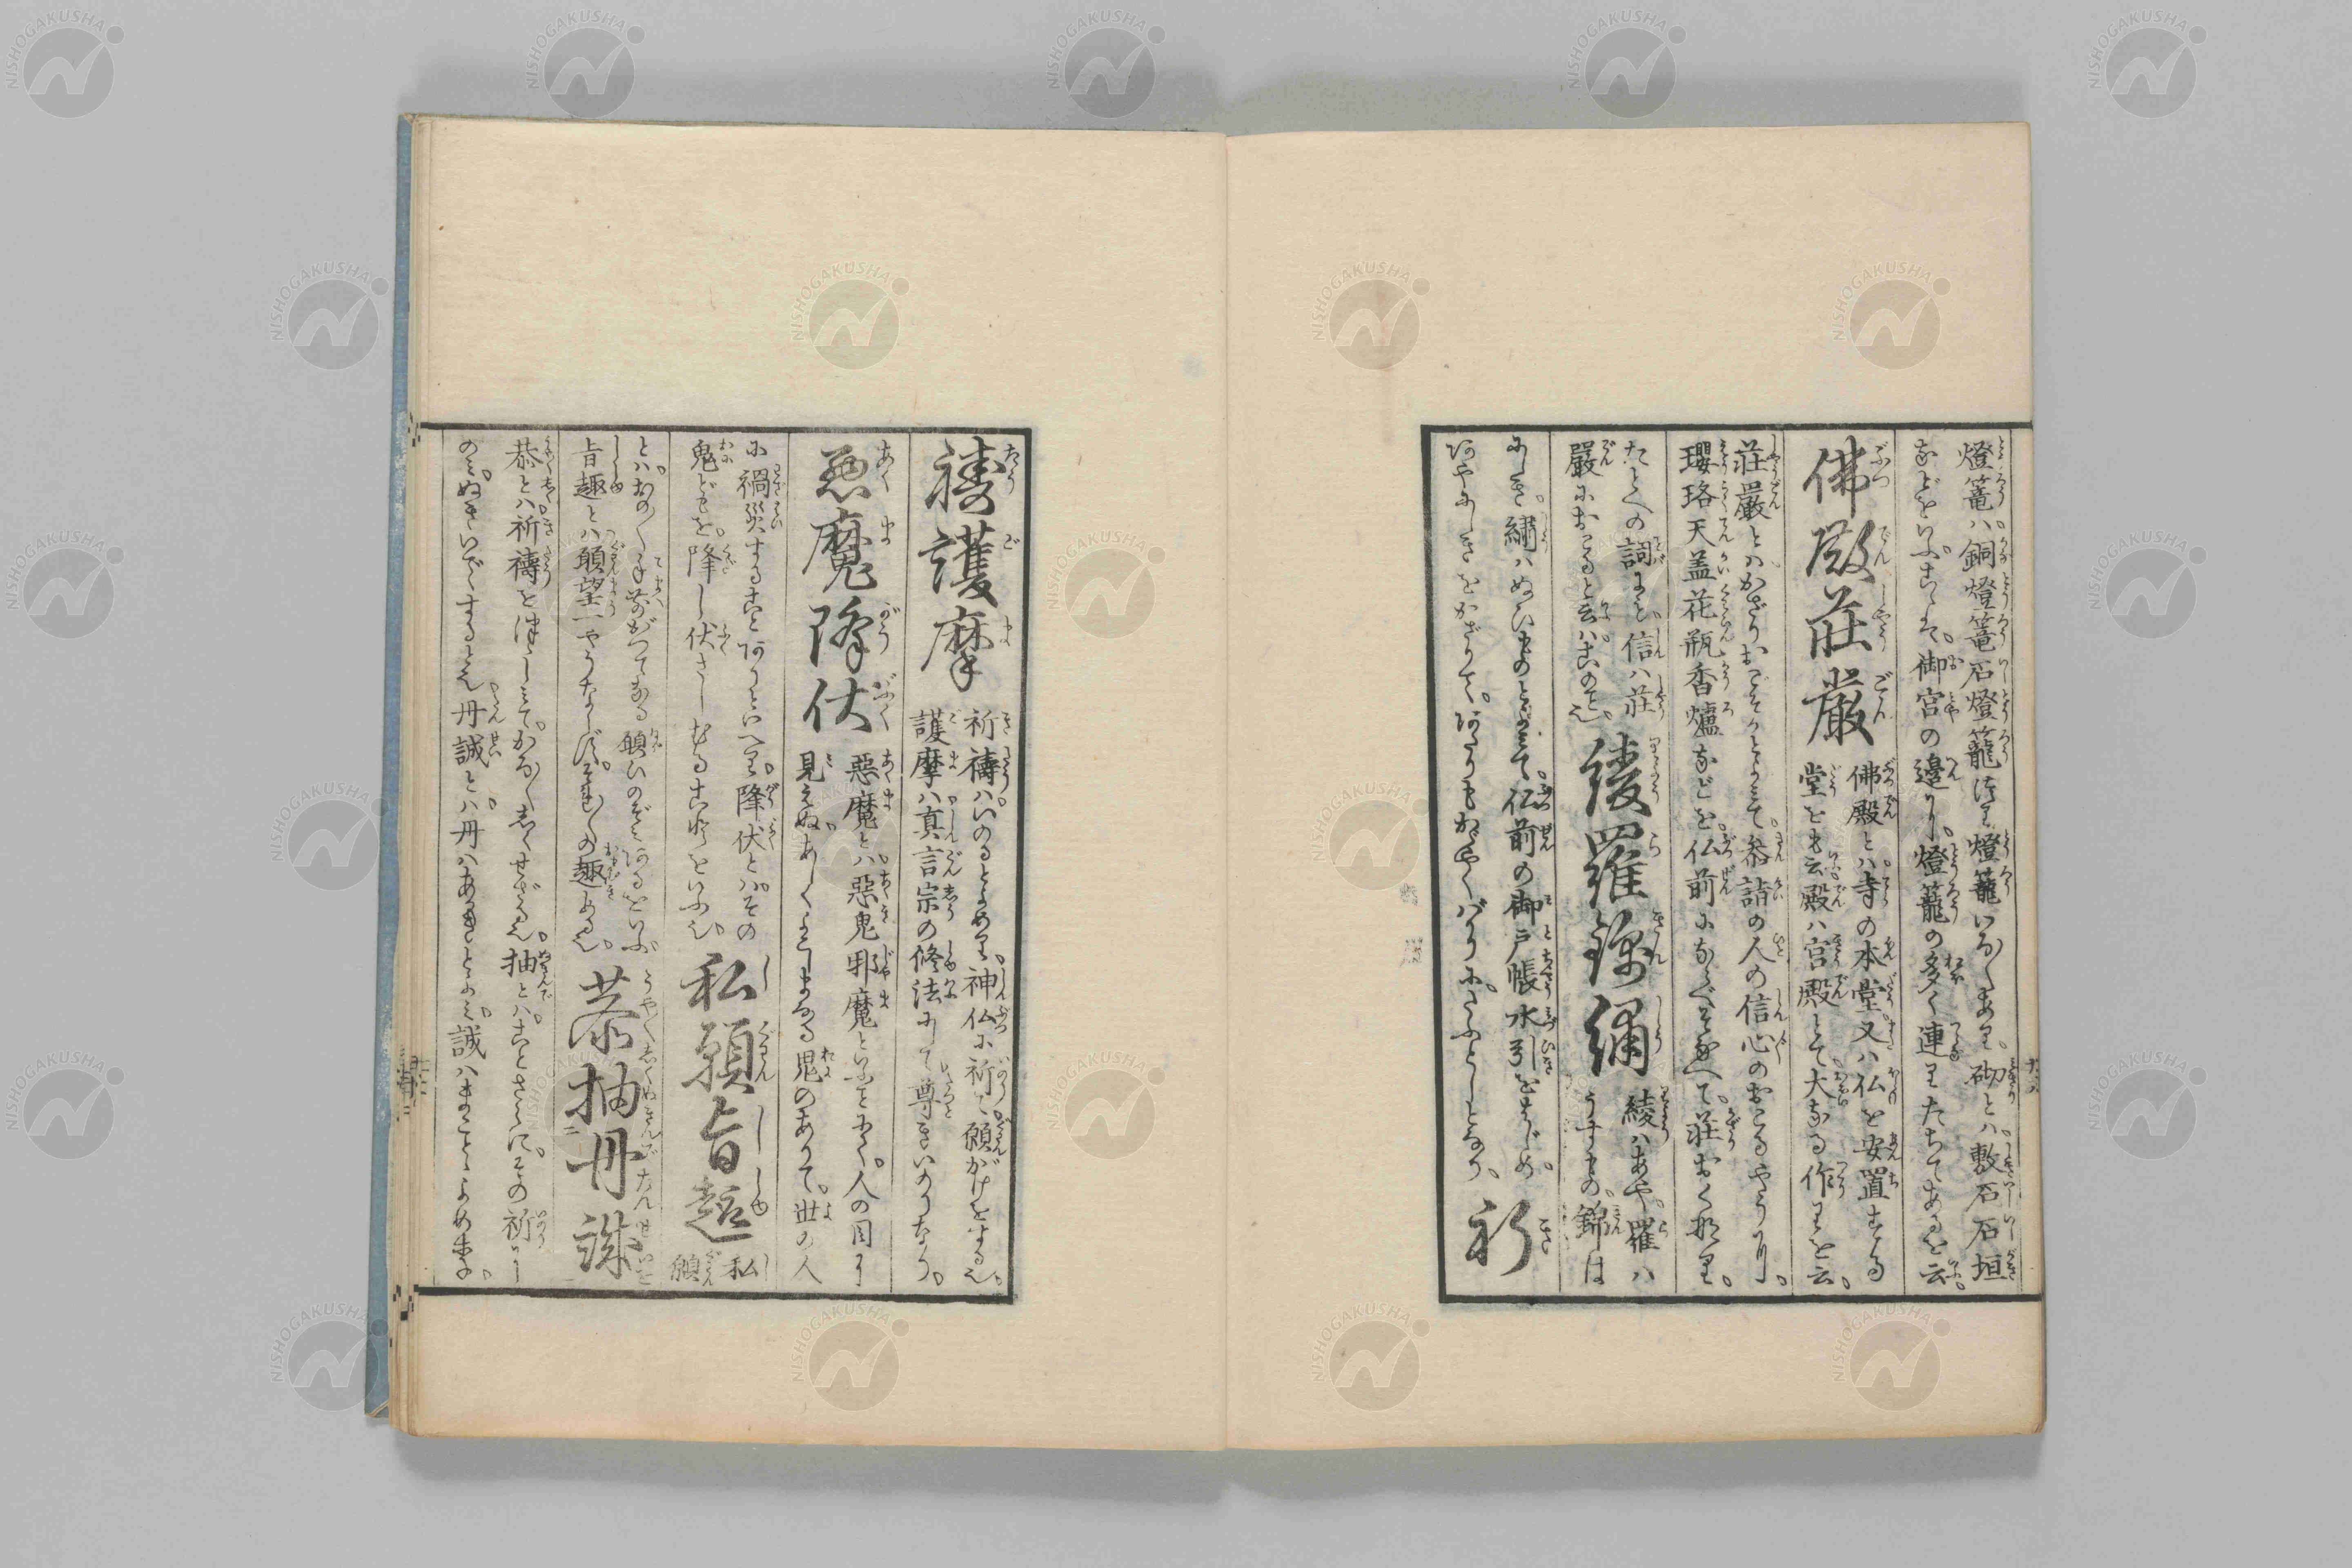 燈篭ハ。銅燈篭石燈籠はり燈籠いろ〳〵あり。砌とハ。敷石石垣
などをいふ。こゝは。御宮の邊りに。燈籠の多く連りたちてあるを云。
佛殿莊嚴
佛殿とハ。寺の本堂又ハ仏を安置する
堂をも云殿ハ宮殿とて。大なる作りを云。
莊嚴とハかざりおごそかとよみて。参詣の人の信心のおこるやうに。
瓔珞天盖花瓶香爐などを。仏前にならべそなへて。莊おく也。
たとへの詞にも。信ハ莊
嚴におこると云ハ。このこと也。
綾羅錦繍
綾ハあや。羅ハ
うすもの。錦は
にしき。繍ハぬひものとよみて。仏前の御戸帳水引をはじめ。
あやにしきをかざりて。
祈
祷護摩
祈祷ハいのるとよめり。神仏に祈て願がけをする也。
護摩ハ真言宗の修法にて尊きいのりなり。
悪魔降伏
惡魔とハ。惡鬼邪魔といふことにて。人の目に
見えぬ。あしくよこしまなる鬼のありて。世の人
に禍災することありといへり。降伏とハ。その
鬼どもを。降し伏さしむることをいふ也。
私願旨趣
私
願
とハ。おの〳〵手前がつてなる願ひのぞみあるをいふ。
旨趣とハ願望一やうならず。それ〳〵の趣ある也。
恭抽丹誠
恭とハ祈祷をはじしみて。かろ〴〵しくせざる也。抽とハ。ことさらに。その祈りに
のみ。ぬきいでゝするとも也。丹誠とハ。丹ハあかきとよみ。誠ハまことゝよめば。